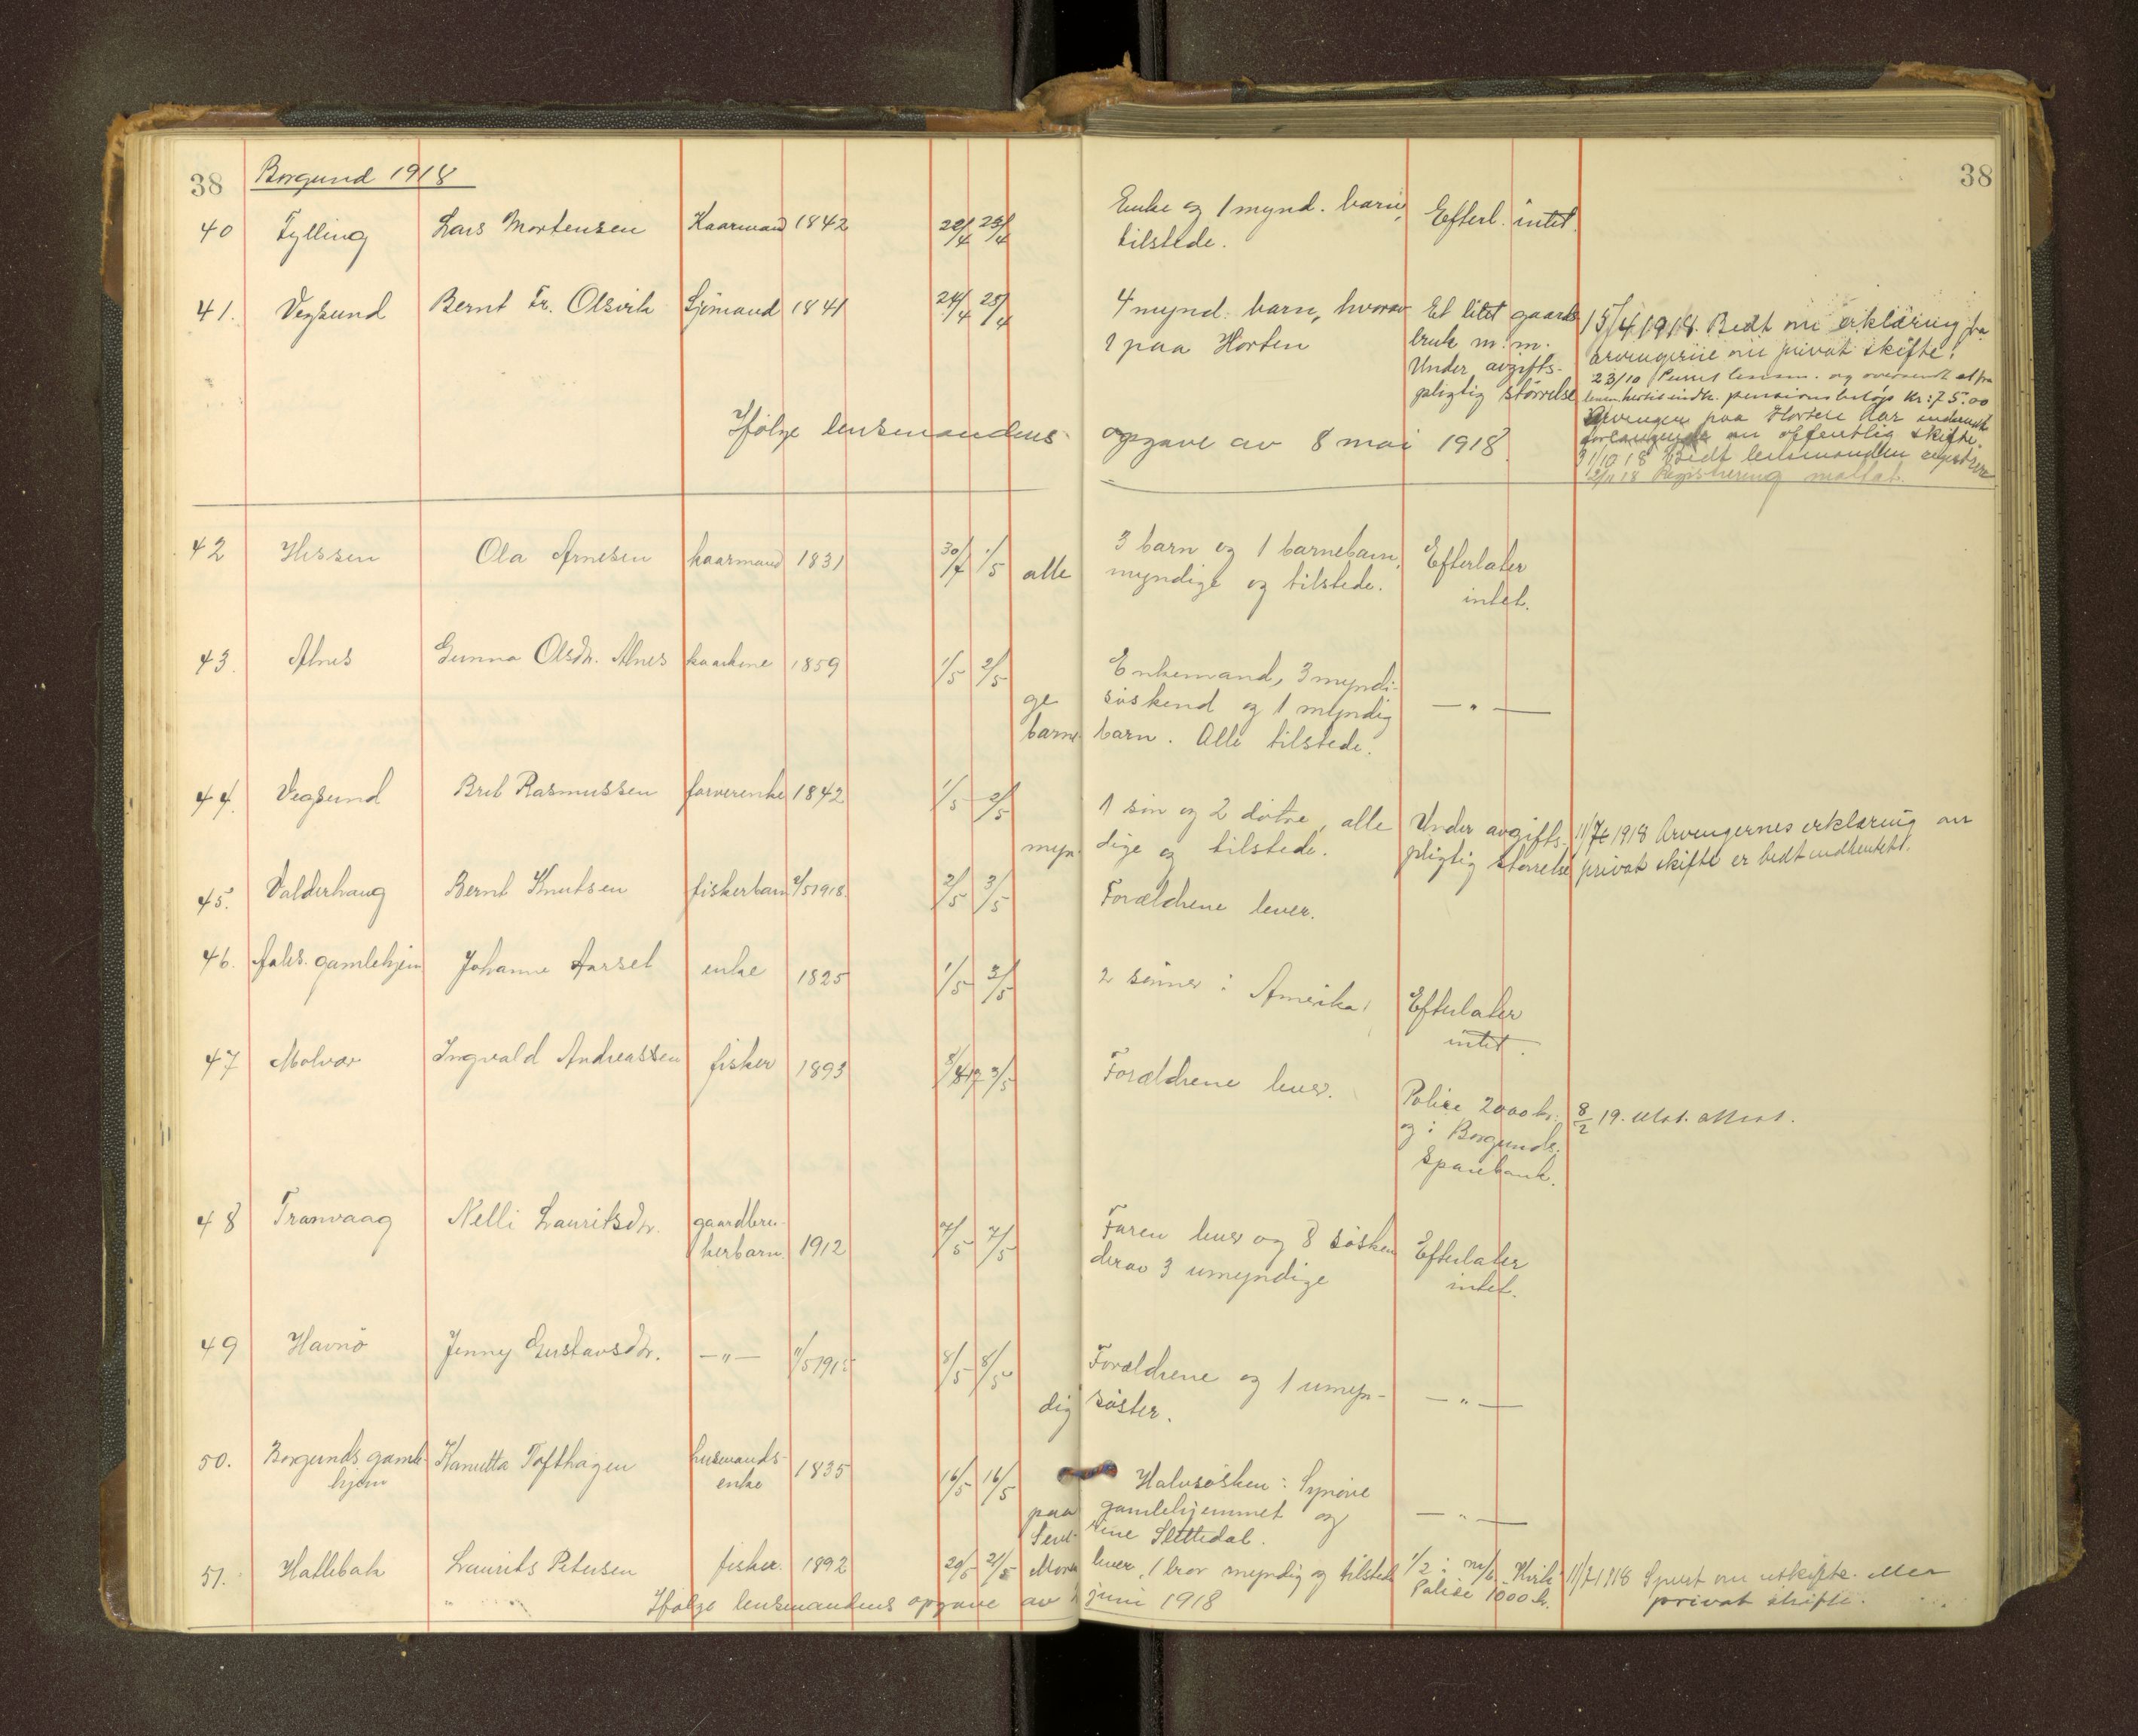 38 Borgund 1918 38
40 Fylling Lars Mortensen Kaarmand 1842 22/4 23/4 Enke og 1 mynd. barn, Efterl. intet.
tilstede.
41. Vegsund Bernt Fr. Olsvik Sjömand 1841 24/4 25/4 4 mynd. barn, hvorav Et litet gaards
1 paa Horten bruk m.m.
Under avgifts-
pligtig størrelse
15/4 1918. Bedt om erklæring fra
arvingerne om privat skifte.
23/10 Purret lensm. og oversendt et fra
pensionsbeløp kr: 75.00
Arvingen paa Horten har indsendt
forlangende om offentlig skifte.
31/10 18 Bedt lensmanden registrere
2/11 18 Registrering mottat.
Ifølge lensmandens opgave av 8 mai 1918
42 Hessen Ola Arnesen kaarmand 1831 30/4 1/5 3 barn og 1 barnebarn, Efterlater
alle myndige og tilstede. intet.
43. Alnes Gunna Olsdr. Alnes kaarkone 1859 1/5 2/5 Enkemand, 3 myndi-
ge søskend og 1 myndig — " —
barne barn. Alle tilstede.
44. Vegsund Brit Rasmussen farverenke 1842 1/5 2/5 1 søn og 2 døtre, alle Under avgifts- 11/7 1918 Arvingernes erklæring om
myn- dige og tilstede. pligtig størrelse privat skifte er bedt indhentet.
45. Valderhaug Bernt Knutsen fiskerbarn 2/5 1918. 2/5 3/5 Forældrene lever.
46. Aales. gamlehjem Johanne Aarset enke 1825 1/5 3/5 2 sønner i Amerika. Efterlater
intet.
47 Molvær Ingvald Andreassen fisker 1893 3/5 Forældrene lever. Police 2000 kr. 8/2 19. utst. attest.
og i Borgunds
Sparebank.
48 Tranvaag Nelli Lauritsdr. gaardbru-
kerbarn 1912 7/5 7/5 Faren lever og 8 søsken Efterlater
derav 3 umyndige intet.
49 Havnø Jenny Gustavsdr. — " — 8/5 8/5 Forældrene og 1 umyn- — " —
dig søster.
50. Borgunds gamle- Kanutta Tofthagen husmands- 1835 16/5 16/5 Halvsøsken: Synøve
hjem enke paa gamlehjemmet og — " —
Sine Slettedal.
51. Hatlebak Laurits Petersen fisker. 1892 20/5 21/5 Moren lever, 1 bror myndig og tilstede 1/2 i m/k Kirk 11/7 1918 Spurt om utskifte eller
Police 1000 kr. privat skifte.
Ifølge lensmandens opgave av juni 1918